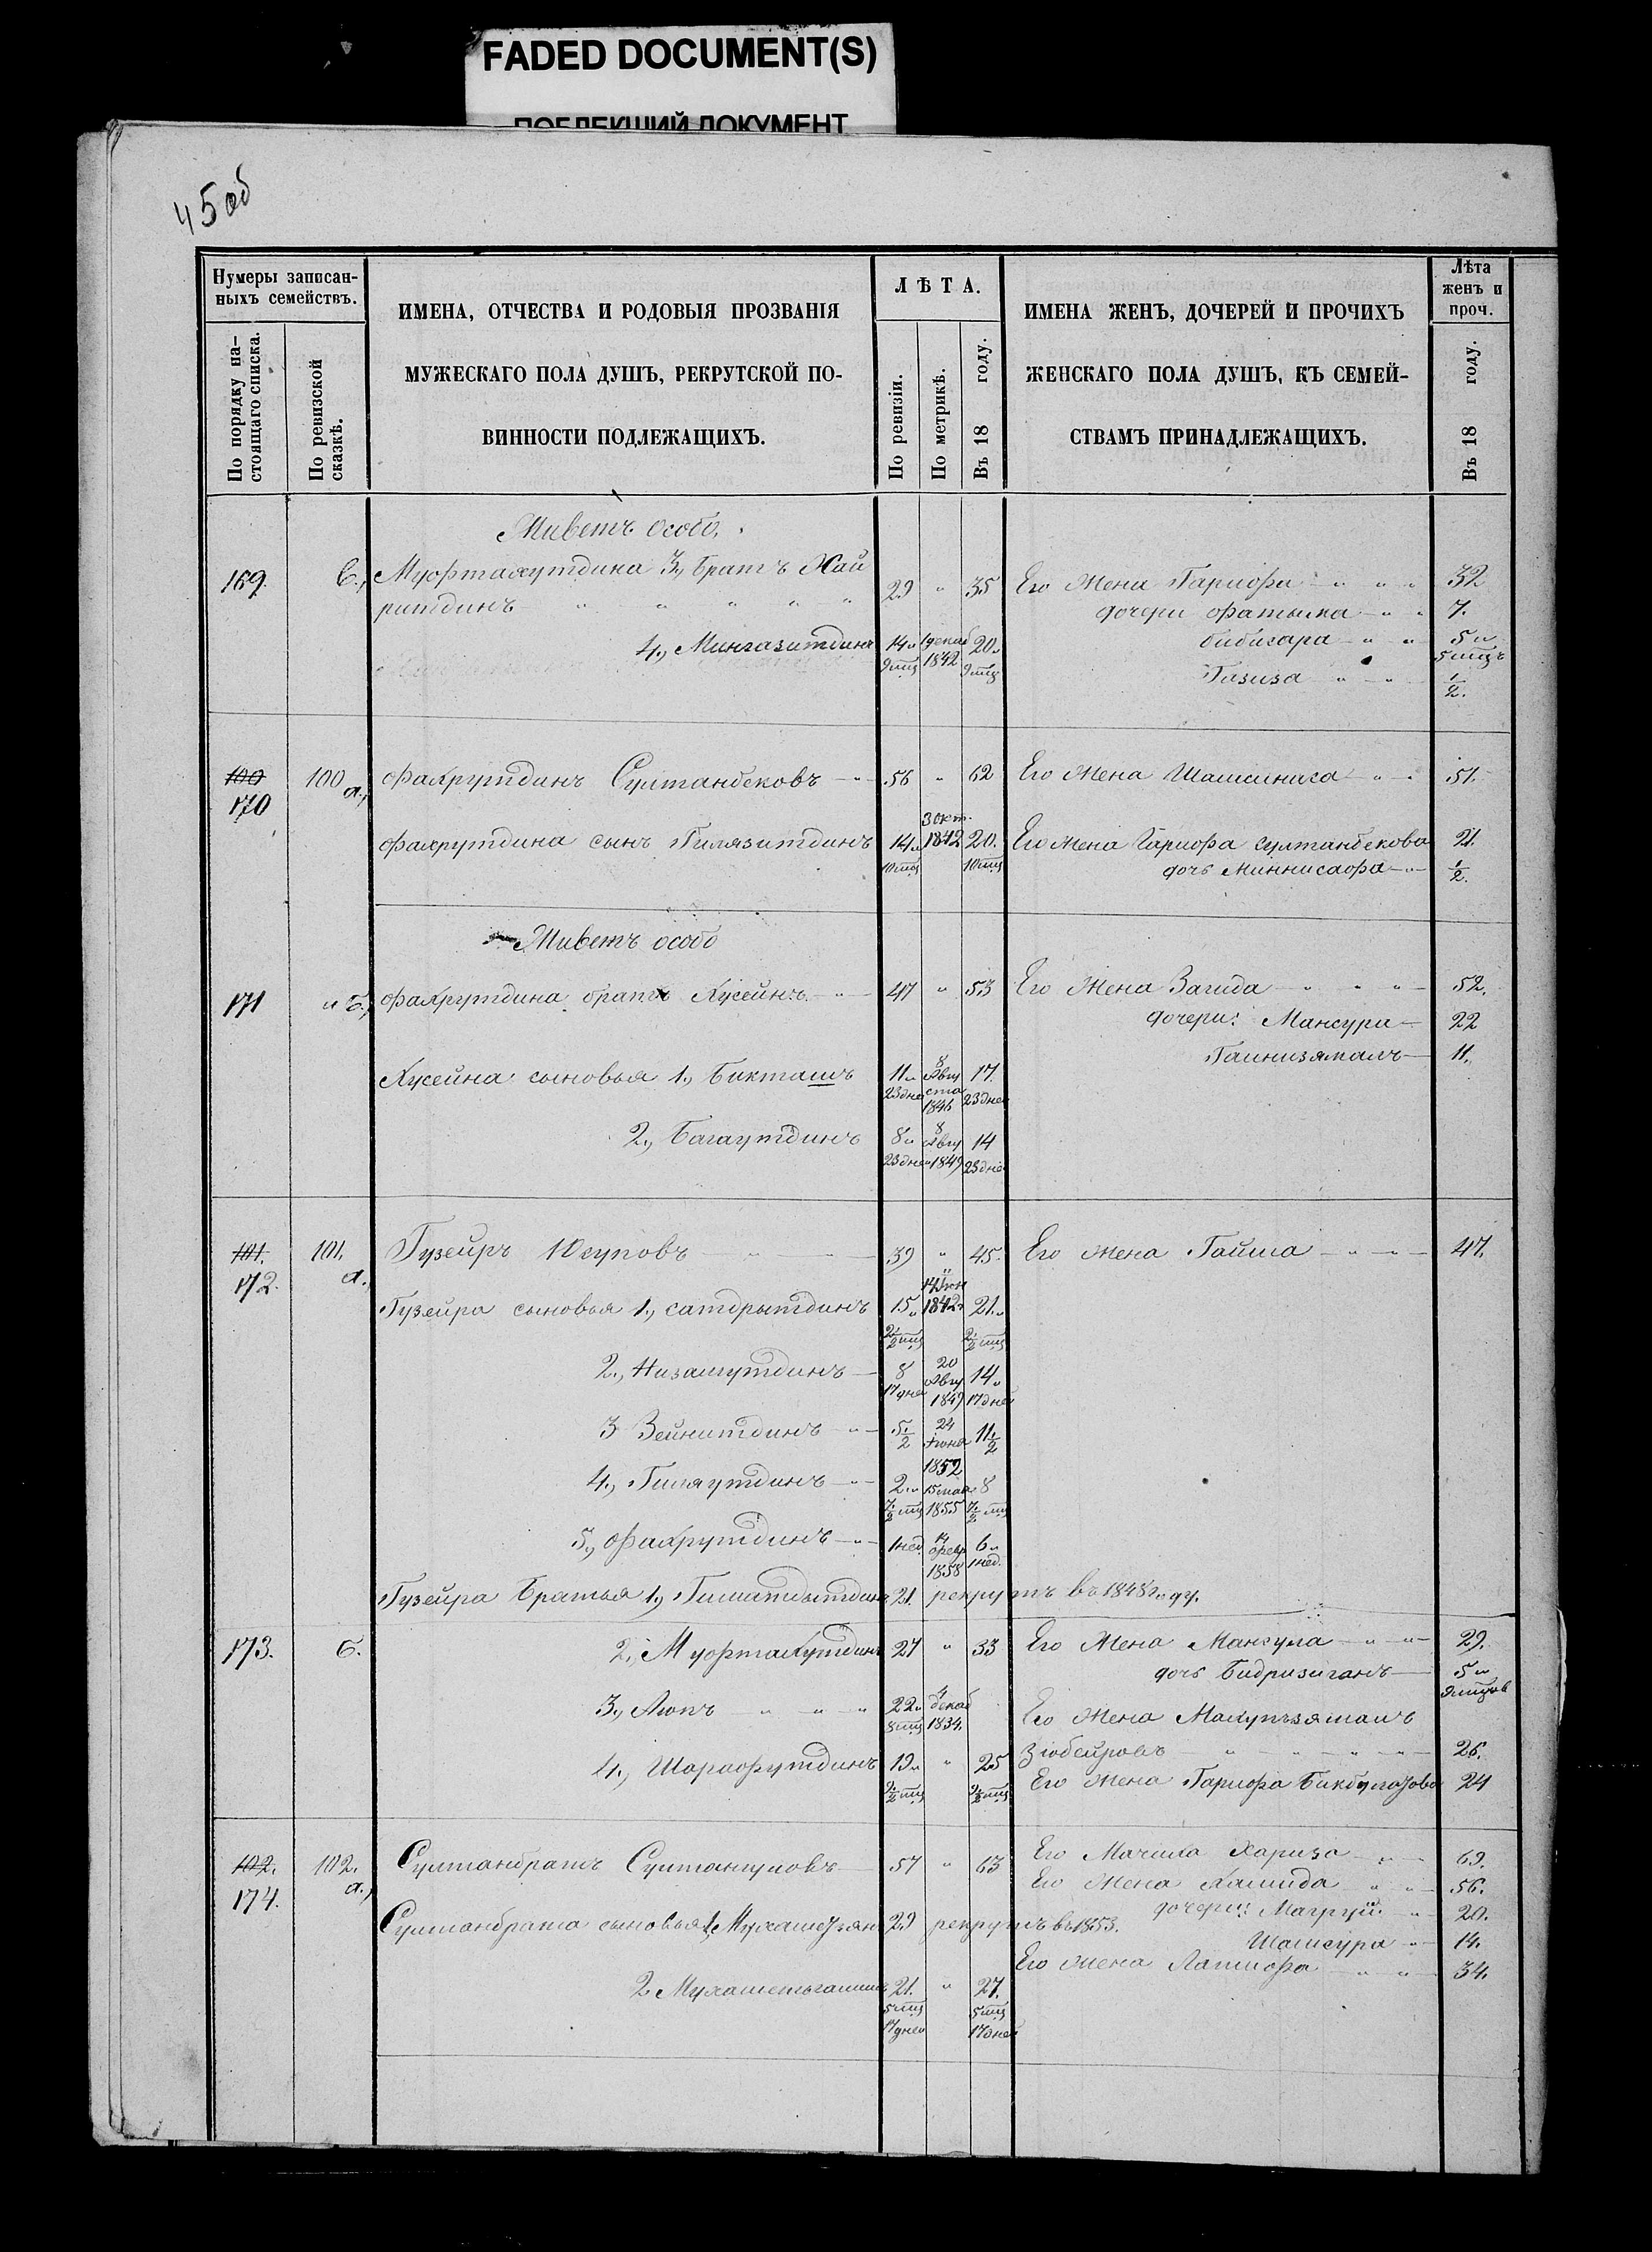 FADED DOCUMENT(S)
ПОБЛЕКШИЙ ДОКУМЕНТ
45 об
Нумеры записан-
ныхъ семействъ.
По порядку на-
стоящаго списка.
По ревизской
сказкѣ.
ИМЕНА, ОТЧЕСТВА И РОДОВЫЯ ПРОЗВАНІЯ
МУЖЕСКАГО ПОЛА ДУШЪ, РЕКРУТСКОЙ ПО-
ВИННОСТИ ПОДЛЕЖАЩИХЪ.
ЛѢТА.
По ревизіи.
По метрикѣ.
Въ 18 году.
ИМЕНА ЖЕНЪ, ДОЧЕРЕЙ И ПРОЧИХЪ
ЖЕНСКАГО ПОЛА ДУШЪ, КЪ СЕМЕЙ-
СТВАМЪ ПРИНАДЛЕЖАЩИХЪ.
Лѣта
женъ и
проч.
Въ 18 году.
Живетъ особо.
169. в., Муфтахутдина 3., братъ Хай
ритдинъ 29 " 35 Его жена Гарифа 32
дочери Фатыма 7.
4., Мингазитдинъ 14 " 9 мц 1 декаб 1842 20 " 9 мц
бибисара 5 " 5 мцъ
Газиза 1/2.
100 170 100 а., Фахрутдинъ Султанбековъ 56 " 62 Его жена Шамсиниса 51.
Фахрутдина сынъ Гилязитдинъ 14 " 10 мц 3 окт. 1842 20. 10 мц Его жена Гарифа султанбекова 21.
дочь Миннисафа 1/2.
Живетъ особо
171 " Б., Фахрутдина братъ Хусеинъ 47 " 53 Его жена Загида 52.
дочери: Мансура 22
Гайнизямалъ 11.
Хусеина сыновья 1., Бикташъ 11 " 23 дне 8 Авгу ста 1846 17. 23 дне
2., Багаутдинъ 8 " 23 дне 8 Авгу 1849 14 23 дне
101. 172. 101. а., Гузеиръ Юсуповъ 39 " 45. Его жена Гайша 47.
Гузеира сыновья 1., сатдрытдинъ 15 " 2 1/2 мц 14 Iюн 1842 21. " 2 1/2 мц
2., Низамутдинъ 8 17 дне 20 Авгу 1849 14 " 17 дне
3 Зейнитдинъ 5 1/2 24 Iюня 1852 11 1/2
4., Гиляутдинъ 2 " 7 1/2 мц 15 мая 1855 8 7 1/2 мц
5., Фахрутдинъ 1 нед. 14 февр 1858 6 " 1 нед.
Гузеира братья 1., 21. рекрутъ въ 1848 году.
173. б. 2., Муфтахутдинъ 27 " 33 Его жена Мансула 29.
дочь Бадризиганъ 5 " 9 мцов
3., Аюпъ 22 " 8 мц 4 декаб 1834.
Его жена
Зюбеировъ 26.
4., Шарафутдинъ 19 " 9 1/2 мц " 25 9 1/2 мц Его жена Гарифа 24
102. 174. 102. а., Султанбратъ Султангуловъ 57 " 63 Его Мачиха Хариза 69.
Его жена Хамида 56.
дочери: Магруй. 20.
Султанбрата сыновья 1, Мухаметзянъ 29 рекрутъ въ 1853.
Шамсура 14.
Его жена Латифа 34.
2 21. 5 мц 17 дне " 27. 5 мц 17 дне